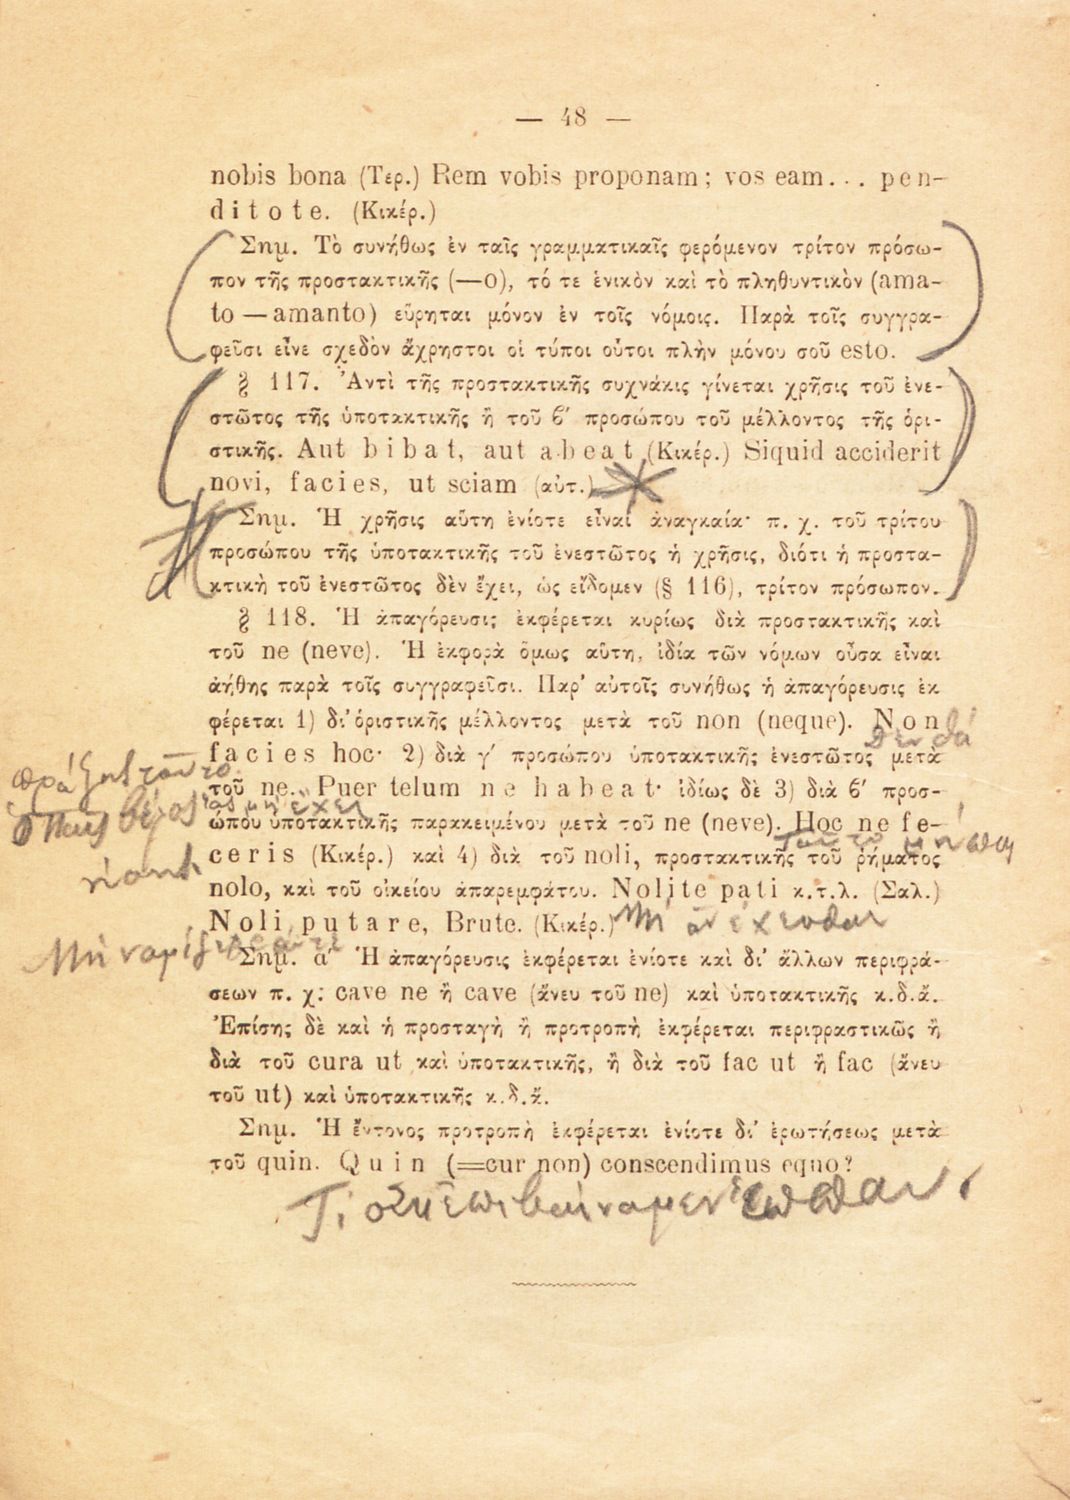 — 48 —
nobis bona (Τερ.) Rem vobis proponam; vos eam... pen-
ditote. (Κικέρ.)
Σημ. Τὸ συνήθως ἐν ταῖς γραμματικαῖς φερόμενον τρίτον πρόσω-
πον τῆς προστακτικῆς (—o), τό τε ἑνικὸν καὶ τὸ πληθυντικὸν (ama-
to — amanto) εὕρηται μόνον ἐν τοῖς νόμοις. Παρὰ τοῖς συγγρα-
φεῦσι εἶνε σχεδὸν ἄχρηστοι οἱ τύποι οὗτοι πλὴν μόνου σοῦ esto.
§ 117. Ἀντὶ τῆς προστακτικῆς συχνάκις γίνεται χρῆσις τοῦ ἐνε-
στῶτος τῆς ὑποτακτικῆς ἢ τοῦ β′ προσώπου τοῦ μέλλοντος τῆς ὁρι-
στικῆς. Aut bibat, aut abeat (Κικέρ.) Siquid acciderit
novi, facies, ut sciam (αὐτ.)
Σημ. Ἡ χρῆσις αὕτη ἐνίοτε εἶναι ἀναγκαία· π. χ. τοῦ τρίτου
προσώπου τῆς ὑποτακτικῆς τοῦ ἐνεστῶτος ἡ χρῆσις, διότι ἡ προστα-
κτικὴ τοῦ ἐνεστῶτος δὲν ἔχει, ὡς εἴδομεν (§ 116), τρίτον πρόσωπον.
§ 118. Ἡ ἀπαγόρευσις ἐκφέρεται κυρίως διὰ προστακτικῆς καὶ
τοῦ ne (neve). Ἡ ἐκφορὰ ὅμως αὕτη, ἰδία τῶν νόμων οὖσα εἶναι
ἀήθης παρὰ τοῖς συγγραφεῦσι. Παρ' αὐτοῖς συνήθως ἡ ἀπαγόρευσις ἐκ
φέρεται 1) δι' ὁριστικῆς μέλλοντος μετὰ τοῦ non (neque). Non
δεν θά
facies hoc· 2) διὰ γ′ προσώπου ὑποτακτικῆς ἐνεστῶτος μετὰ
πράξης τοῦτο
τοῦ ne. Puer telum ne habeat· ἰδίως δὲ 3) διὰ β′ προσ-
ὁ παῖς βέλος ἄς μή ἔχει
ώπου ὑποτακτικῆς παρακειμένου μετὰ τοῦ ne (neve). Hoc ne fe-
τοῦτο μή
ceris (Κικέρ.) καὶ 4) διὰ τοῦ noli, προστακτικῆς τοῦ ῥήματος
nolo, καὶ τοῦ οἰκείου ἀπαρεμφάτου. Nolite pati κ.τ.λ. (Σαλ.)
Noli putare, Brute. (Κικέρ.) Μή ἀνέχεσθαι
Μή νομίζε
Σημ. ά Ἡ ἀπαγόρευσις ἐκφέρεται ἐνίοτε καὶ δι' ἄλλων περιφρά-
σεων π. χ: cave ne ἢ cave (ἄνευ τοῦ ne) καὶ ὑποτακτικῆς κ.δ.ἄ.
Ἐπίσης δὲ καὶ ἡ προσταγὴ ἢ προτροπὴ ἐκφέρεται περιφραστικῶς ἢ
διὰ τοῦ cura ut καὶ ὑποτακτικῆς, ἢ διὰ τοῦ fac ut ἢ fac (ἄνευ
τοῦ ut) καὶ ὑποτακτικῆς κ.δ.ἄ.
Σημ. Ἡ ἔντονος προτροπὴ ἐκφέρεται ἐνίοτε δι' ἐρωτήσεως μετὰ
τοῦ quin. Quin (=cur non) conscendimus equo?
Τί οὐκ ἐπιβαίνομεν